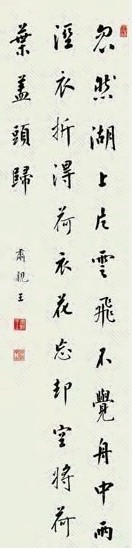 忽然湖上片雲飛不覺舟中雨
溼衣折得荷衣花忘却空將荷
葉蓋頭歸
肅親王